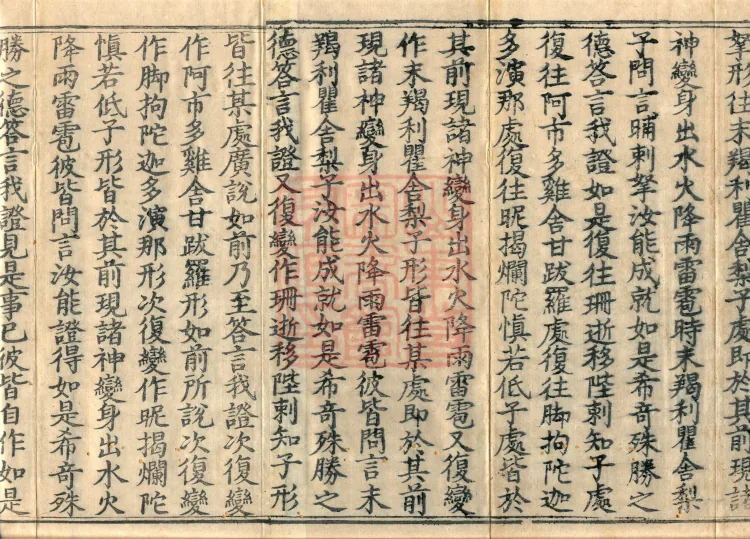 拏形往末羯利瞿舍梨子處即於其前現諸
神變身出水火降雨雷雹時末羯利瞿舍梨
子問言晡剌拏汝能成就如是希奇殊勝之
德答言我證如是復往珊逝移陛剌知子處
復往阿市多雞舍甘跋羅處復往脚拘陀迦
多演那處復往昵揭爛陀慎若低子處皆於
其前現諸神變身出水火降雨雷雹又復變
作末羯利瞿舍梨子形皆往某處即於其前
現諸神變身出水火降雨雷雹彼皆問言末
羯利瞿舍梨子汝能成就如是希奇殊勝之
德答言我證又復變作珊逝移陛剌知子形
皆往某處廣說如前乃至答言我證次復變
作阿市多雞舍甘跋羅形如前所說次復變
作脚拘陀迦多演那形次復變作昵揭爛陀
慎若低子形皆於其前現諸神變身出水火
降雨雷雹彼皆問言汝能證得如是希奇殊
勝之德答言我證見是事已彼皆自作如是